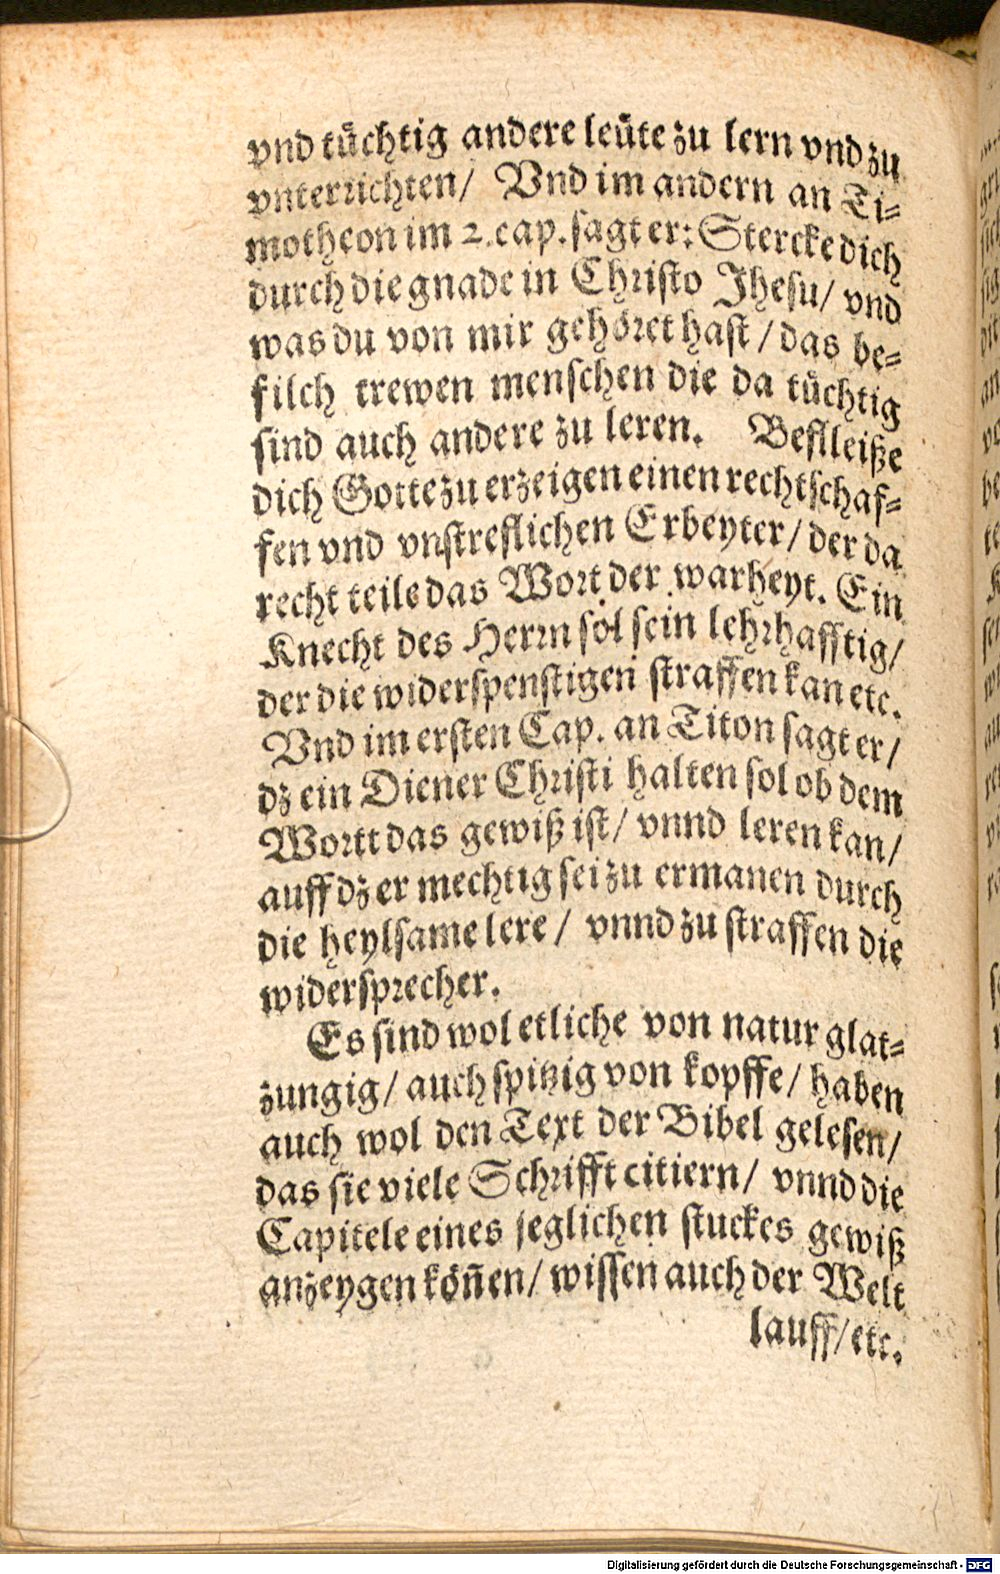 vnd tüchtig andere leüte zu lern vnd zu
vnterrichten/ Vnd im andern an Ti-
motheon im 2. cap. sagt er: Stercke dich
durch die gnade in Christo Jhesu/ vnd
was du von mir gehöret hast/ das be-
filch trewen menschen die da tüchtig
sind auch andere zu leren. Beflleiße
dich Gotte zu erzeigen einen rechtschaf-
fen vnd vnstreflichen Erbeyter/ der da
recht teile das Wort der warheyt. Ein
Knecht des Herrn sol sein lehrhafftig/
der die widerspenstigen straffen kan etc.
Vnd im ersten Cap. an Titon sagt er/
dz ein Diener Christi halten sol ob dem
Wortt das gewiß ist/ vnnd leren kan/
auff dz er mechtig sei zu ermanen durch
die heylsame lere/ vnnd zu straffen die
widersprecher.
Es sind wol etliche von natur glat-
zungig/ auch spitzig von kopffe/ haben
auch wol den Text der Bibel gelesen/
das sie viele Schrifft citiern/ vnnd die
Capitele eines jeglichen stuckes gewiß
anzeygen köñen/ wissen auch der Welt
lauff/ etc.
Digitalisierung gefördert durch die Deutsche Forschungsgemeinschaft - DFG